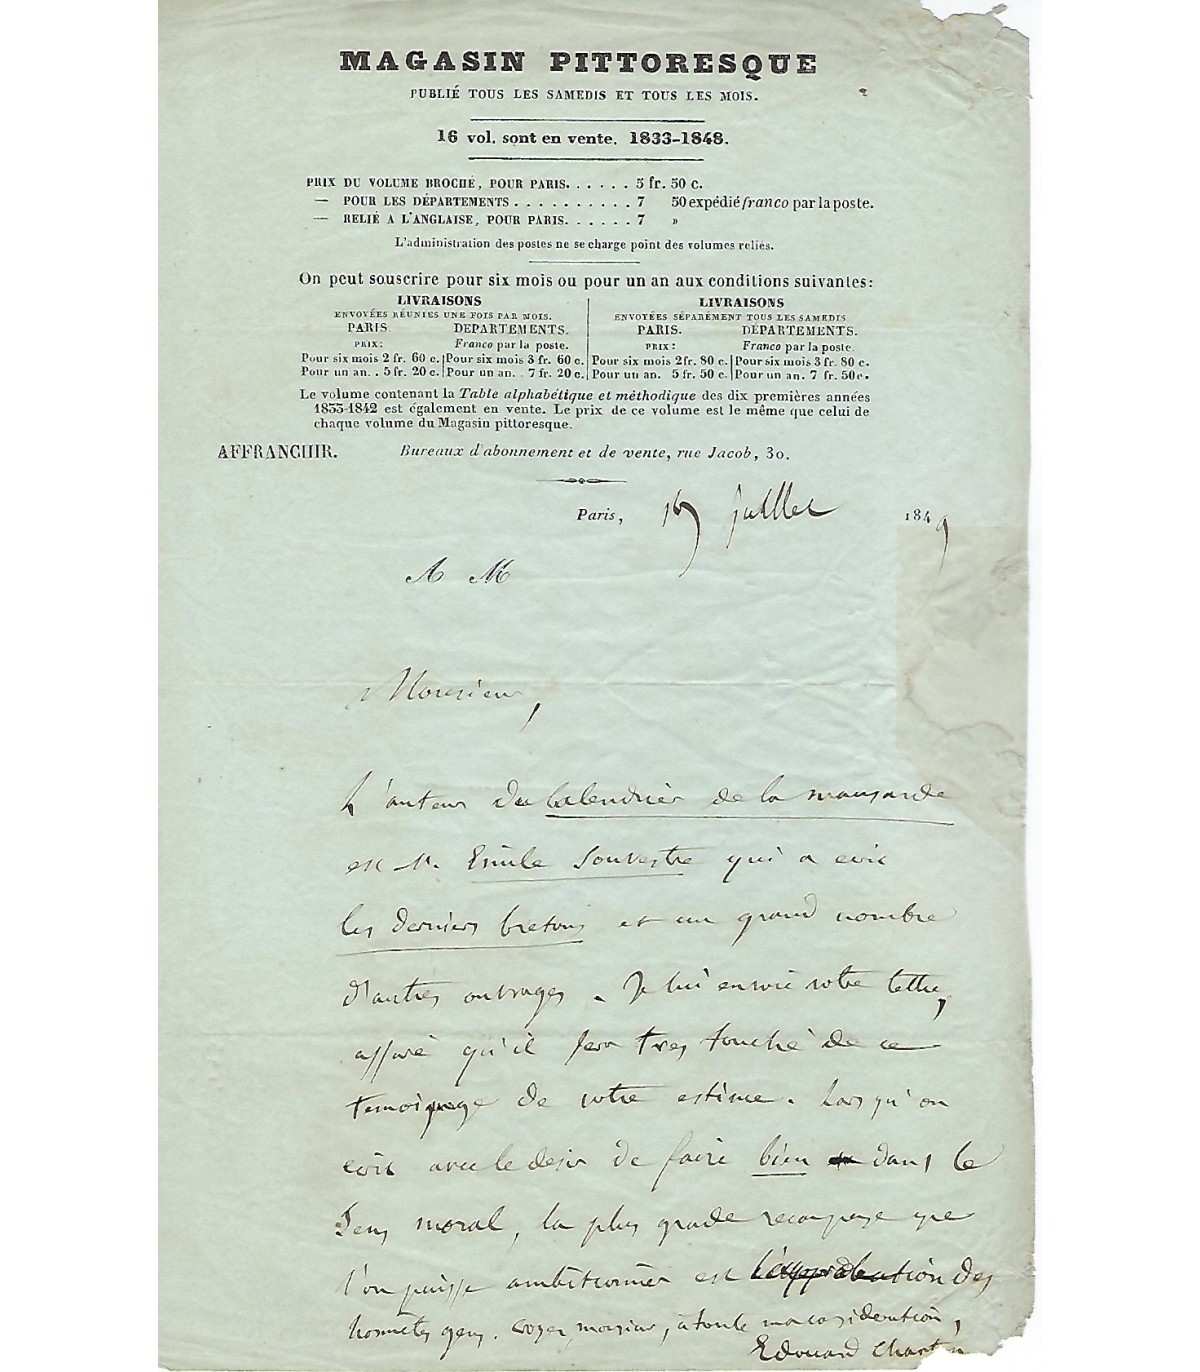 MAGASIN PITTORESQUE
PUBLIÉ TOUS LES SAMEDIS ET TOUS LES MOIS.
16 vol. sont en vente. 1833-1848.
PRIX DU VOLUME BROCHÉ, POUR PARIS. . . . . . 5 fr. 50 c.
— POUR LES DÉPARTEMENTS . . . . . . . . . . 7 50 expédié franco par la poste.
— RELIÉ A L'ANGLAISE, POUR PARIS. . . . . . 7 »
L'administration des postes ne se charge point des volumes reliés.
On peut souscrire pour six mois ou pour un an aux conditions suivantes:
LIVRAISONS
ENVOYÉES RÉUNIES UNE FOIS PAR MOIS.
PARIS. DÉPARTEMENTS.
PRIX: Franco par la poste.
Pour six mois 2 fr. 60 c. Pour six mois 3 fr. 60 c.
Pour un an. . 5 fr. 20 c. Pour un an. . 7 fr. 20 c.
LIVRAISONS
ENVOYÉES SÉPARÉMENT TOUS LES SAMEDIS
PARIS. DÉPARTEMENTS.
PRIX: Franco par la poste.
Pour six mois 2 fr. 80 c. Pour six mois 3 fr. 80 c.
Pour un an. 5 fr. 50 c. Pour un an. 7 fr. 50 c.
Le volume contenant la Table alphabétique et méthodique des dix premières années
1833-1842 est également en vente. Le prix de ce volume est le même que celui de
chaque volume du Magasin pittoresque.
AFFRANCHIR. Bureaux d'abonnement et de vente, rue Jacob, 30.
Paris, juillet 1849
A M
Monsieur,
L'auteur du Calendrier de la mansarde
est M. Emile Souvestre qui a ecrit
les derniers bretons et un grand nombre
d'autres ouvrages. Je lui envoie votre lettre,
assuré qu'il sera tres touché de ce
temoignage de votre estime. Lorsqu'on
ecrit avec le desir de faire bien dans le
sens moral, la plus grande recompense que
l'on puisse ambitionner est l'approbation des
honnêtes gens. Croyez, monsieur, à toute ma consideration,
Edouard Charton